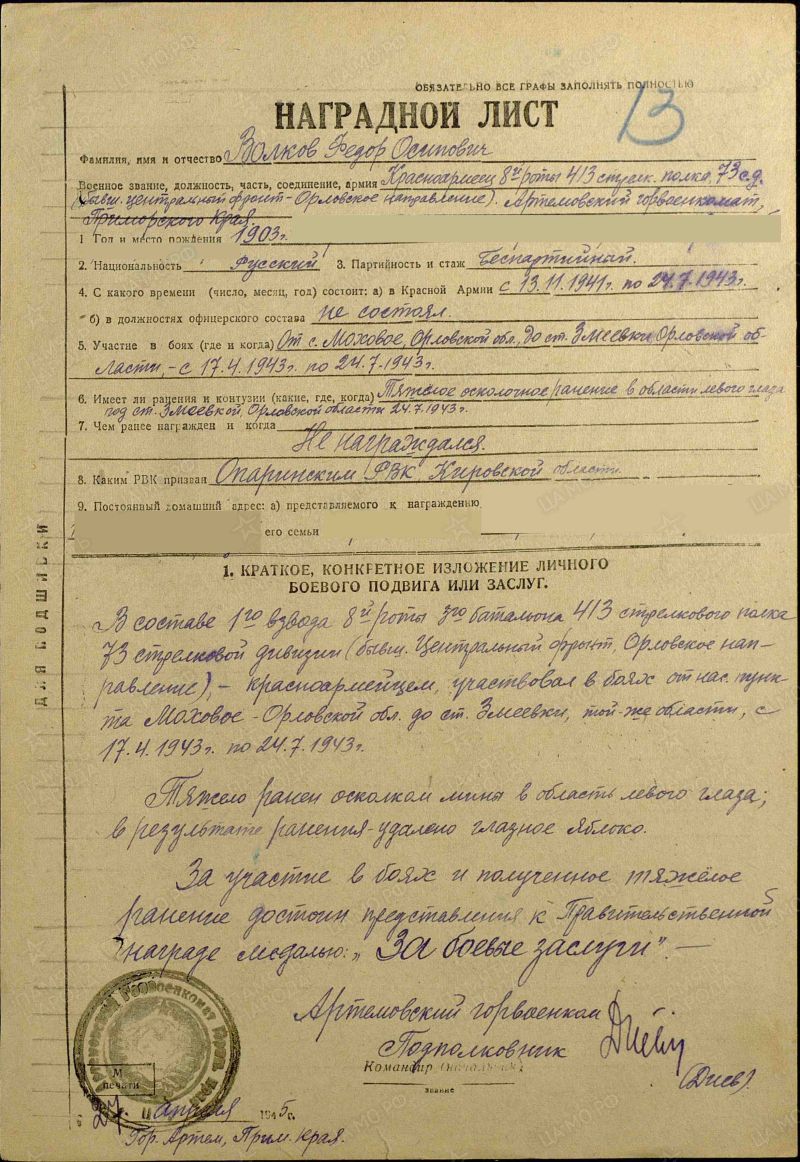 ОБЯЗАТЕЛЬНО ВСЕ ГРАФЫ ЗАПОЛНЯТЬ ПОЛНОСТЬЮ
13
НАГРАДНОЙ ЛИСТ
Фамилия, имя и отчество Волков Федор Осипович
Военное звание, должность, часть, соединение, армия Красноармеец 8й роты 413 стрелк. полка, 73 с.д.
(бывш. центральный фронт - Орловское направление). Артемовский горвоенкомат,
Приморского края.
1 Год и место рождения 1903 г.
2. Национальность Русский 3. Партийность и стаж Беспартийный.
4. С какого времени (число, месяц, год) состоит: а) в Красной Армии с 13.11.1941 г. по 24.7.1943 г.
б) в должностях офицерского состава не состоял.
5. Участие в боях (где и когда) От с. Моховое, Орловской обл., до ст. Змеевки Орловской об-
ласти, - с 17.4.1943 г. по 24.7.1943 г.
6. Имеет ли ранения и контузии (какие, где, когда) Тяжелое осколочное ранение в области левого глаза
под ст. Змеевкой, Орловской области 24.7.1943 г.
7. Чем ранее награжден и когда
Не награждался.
8. Каким РВК призван Опаринским РВК Кировской области
9. Постоянный домашний адрес: а) представляемого к награждению
его семьи
1. КРАТКОЕ, КОНКРЕТНОЕ ИЗЛОЖЕНИЕ ЛИЧНОГО
БОЕВОГО ПОДВИГА ИЛИ ЗАСЛУГ.
В составе 1го взвода 8й роты 3го батальона 413 стрелкового полка
73 стрелковой дивизии (бывш. Центральный фронт, Орловское нап-
равление), - красноармейцем, участвовал в боях от нас. пунк-
та Моховое - Орловской обл. до ст. Змеевки, той-же области, с
17.4.1943 г. по 24.7.1943 г.
Тяжело ранен осколком мины в область левого глаза;
в результате ранения - удалено глазное яблоко.
За участие в боях и полученное тяжёлое
ранение достоин представления к Правительственной
награде медалью: „За боевые заслуги". -
Артемовский горвоенком
Подполковник
Командир (начальник)
звание
(Диев)
М
печати
27. апреля 1945 г.
Гор. Артем, Прим. края.
ДЛЯ ПОДШИВКИ